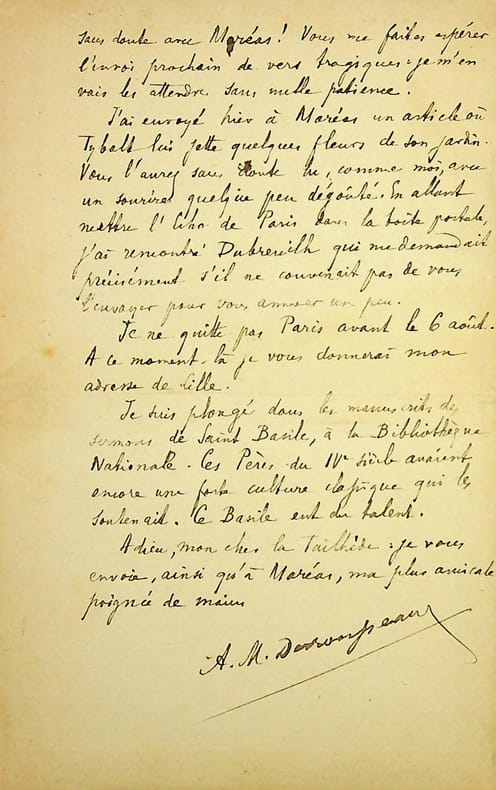 sans doute avec Moréas! Vous me faites espérer
l'envoi prochain de vers tragiques: je m'en
vais les attendre sans nulle patience.
J'ai envoyé hier à Moréas un article où
Tybalt lui jette quelques fleurs de son jardin.
Vous l'aurez sans doute lu, comme moi, avec
un sourire quelque peu dégoûté. En allant
mettre l'Echo de Paris dans la boîte postale,
j'ai rencontré Dubreuilh qui me demandait
précisément s'il ne convenait pas de vous
l'envoyer pour vous amuser un peu.
Je ne quitte pas Paris avant le 6 août.
A ce moment-là je vous donnerai mon
adresse de Lille.
Je suis plongé dans les manuscrits des
sermons de Saint Basile, à la Bibliothèque
Nationale. Ces Pères du IVe siècle avaient
encore une forte culture classique qui les
soutenait. Ce Basile eut du talent.
Adieu, mon cher la Tailhède: je vous
envoie, ainsi qu'à Moréas, ma plus amicale
poignée de mains
A. M. Desrousseaux